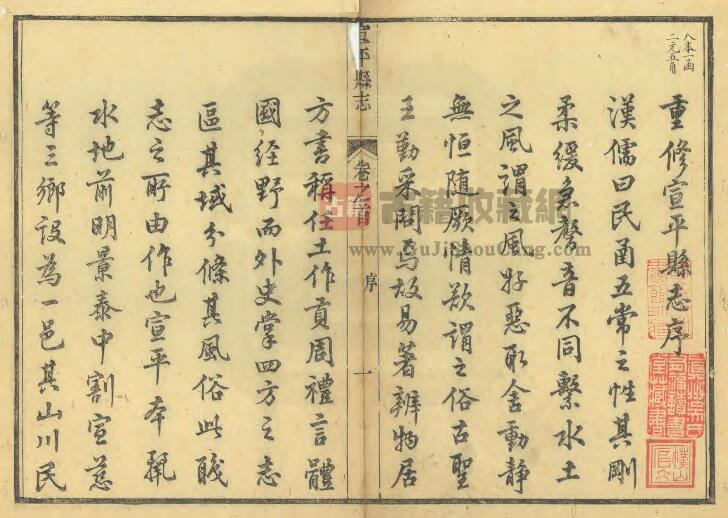 八本一函
二元五角
重修宣平縣志序
漢儒曰民函五常之性其剛
柔緩急聲音不同繫水土
之風謂之風好惡取舍動靜
無恒隨厥情欲謂之俗古聖
王勤采問焉故易著辨物居
宣平縣志
卷之首
序
一
方書稱任土作貢周禮言體
國經野而外史掌四方之志
區其域分條其風俗此職
志之所由作也宣平本麗
水地前明景泰中割宣慈
等三鄉設為一邑其山川民
真州吳氏
有福讀書
堂藏書
古籍
古籍收藏網
www.GuJiShouCang.com